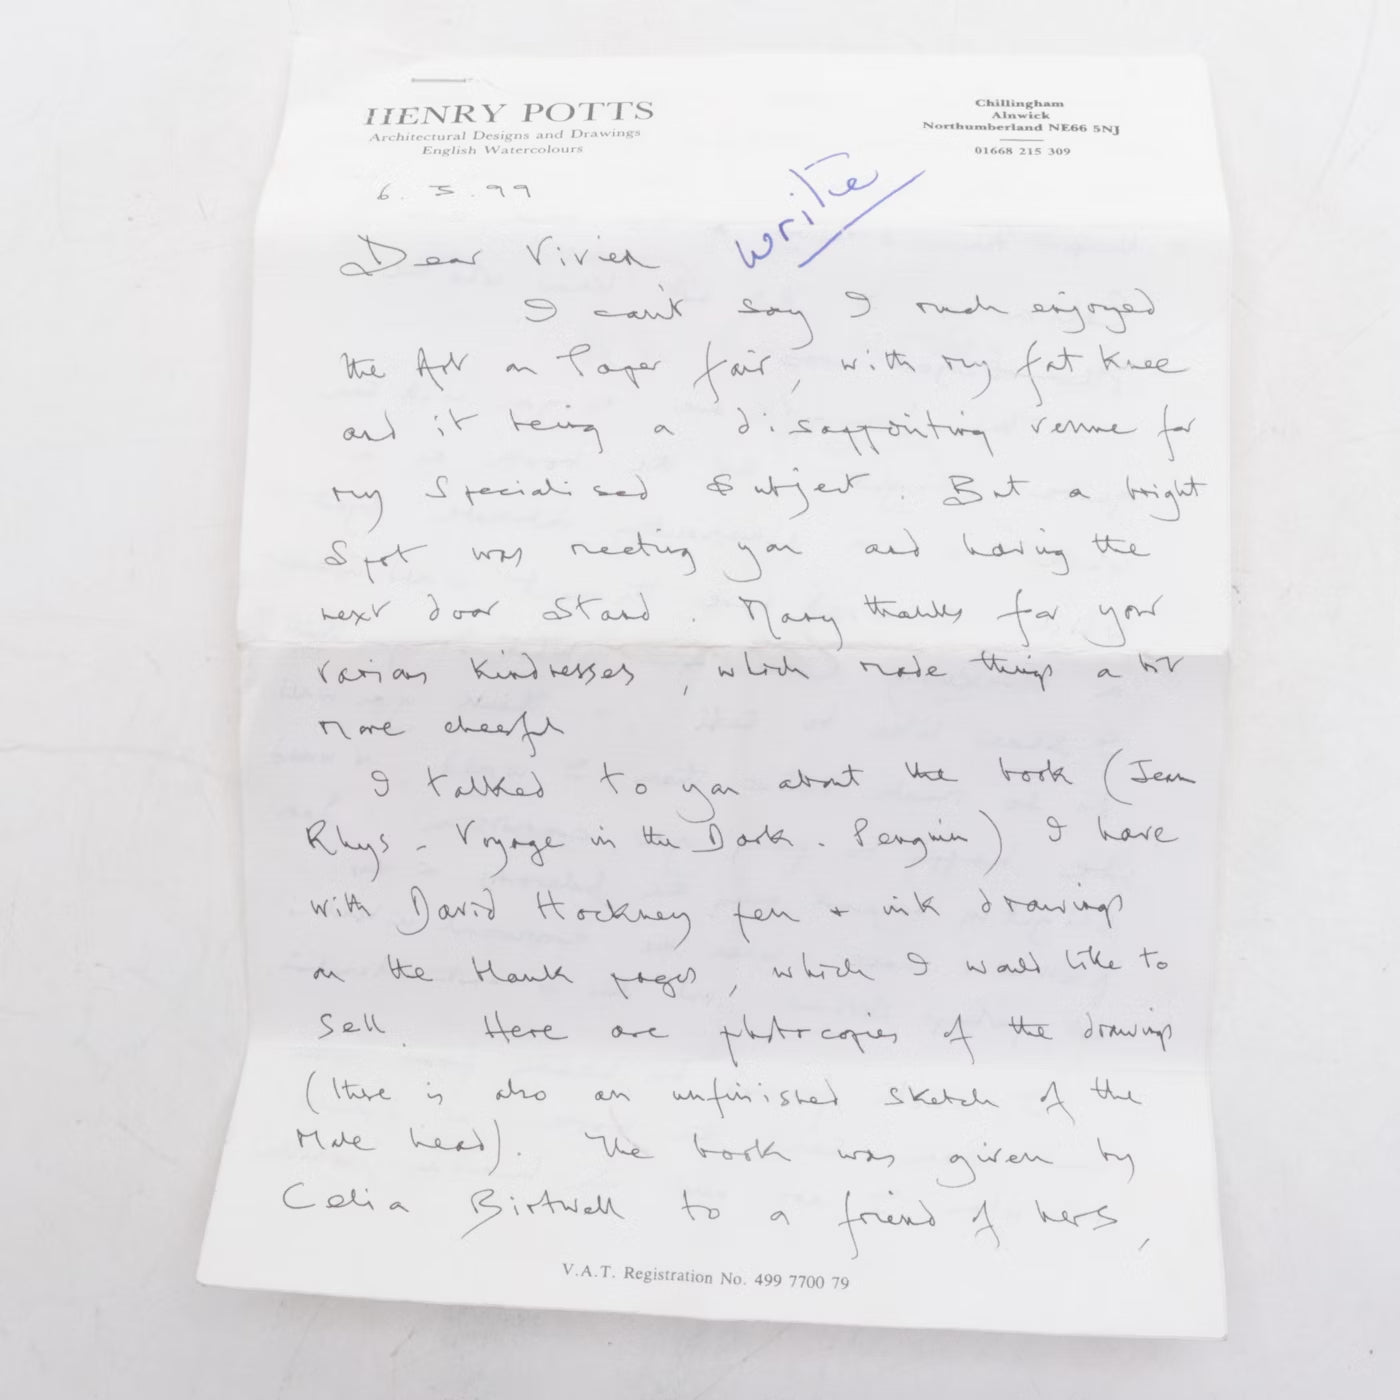 HENRY POTTS
Architectural Designs and Drawings
English Watercolours
Chillingham
Alnwick
Northumberland NE66 5NJ
01668 215 309
6. 3. 99
write
Dear Vivien
I can't say I much enjoyed
the Art on Paper fair, with my fat knee
and it being a disappointing venue for
my specialised subject. But a bright
spot was meeting you and having the
next door stand. Many thanks for your
various kindnesses, which made things a bit
more cheerful
I talked to you about the book (Jean
Rhys - Voyage in the Dark. Penguin) I have
with David Hockney pen + ink drawings
on the blank pages, which I would like to
sell. Here are photocopies of the drawings
(there is also an unfinished sketch of the
male head). The book was given by
Celia Birtwell to a friend of hers,
V.A.T. Registration No. 499 7700 79